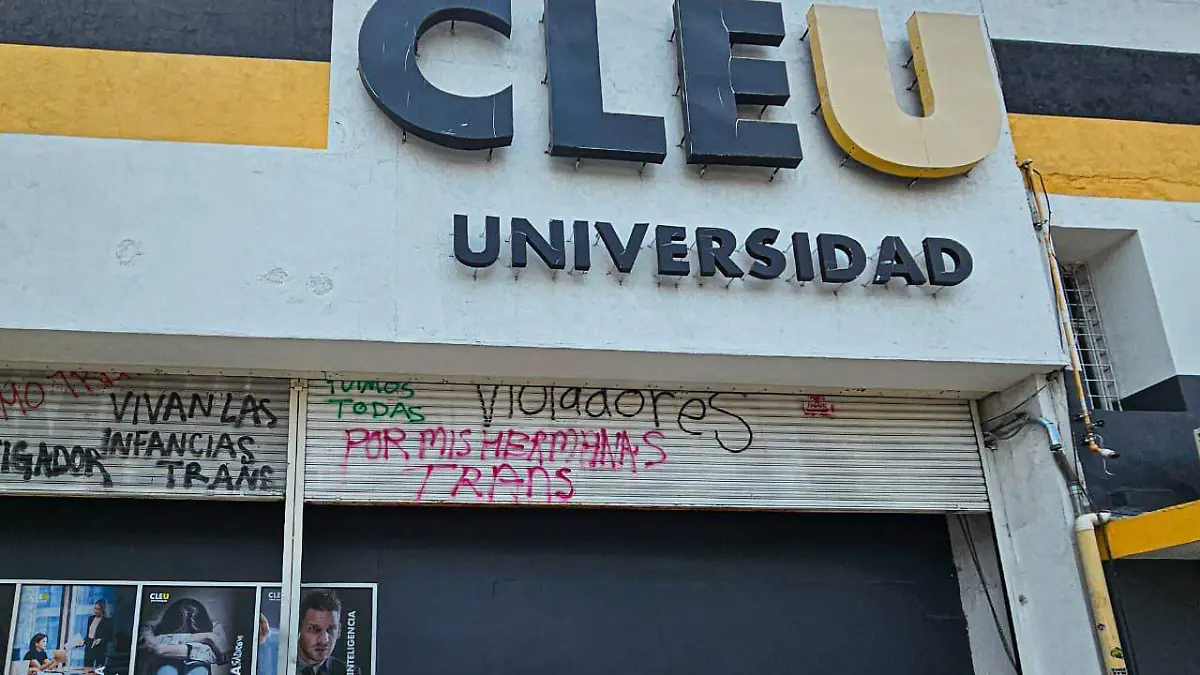 CLEU
UNIVERSIDAD
VIVAN LAS
INFANCIAS
TRANS
TODAS
Violadores
POR MIS HERMANAS
TRANS
CLEU
CLEU
INTELIGENCIA